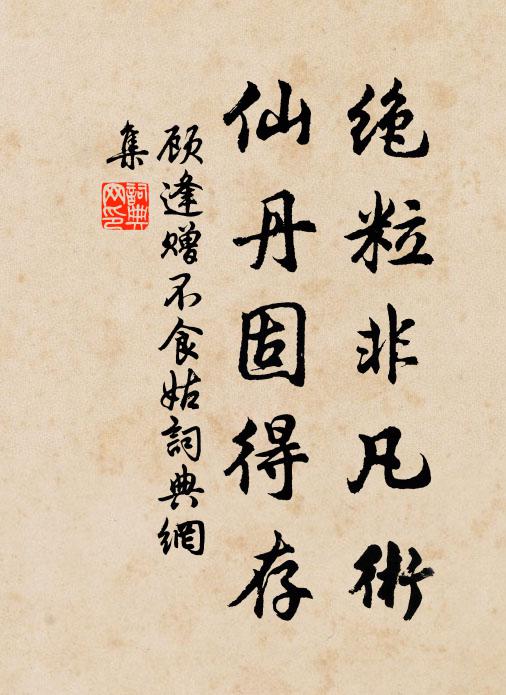 绝粒非凡術
仙丹固得存
顾逢赠不食姑詞典網
集
詞典
网印